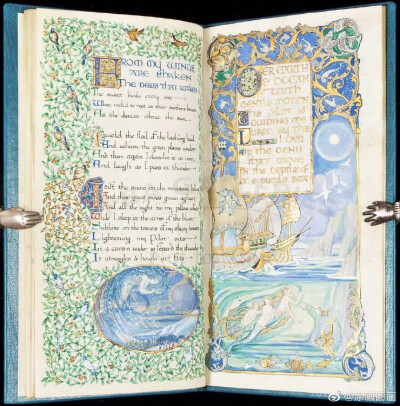 FROM MY WINGS
ARE SHAKEN
THE DEWS THAT WAKEN
The sweet buds every one
When rocked to rest on their mother's breast
As she dances about the sun
I wield the flail of the lashing hail
And whiten the green plains under
And then again I dissolve it in rain
And laugh as I pass in thunder
I sift the snow on the mountains below
And their great pines groan aghast
And all the night 'tis my pillow white
While I sleep in the arms of the blast
Sublime on the towers of my skiey bowers
Lightning my Pilot sits
In a cavern under is fettered the thunder
It struggles & howls at fits
OVER EARTH
& OCEAN
WITH
GENTLE MOTION
THIS PILOT IS
GUIDING ME
LURED BY THE
LOVE
OF THE GENII
THAT MOVE
IN THE DEPTHS OF
THE PURPLE SEA